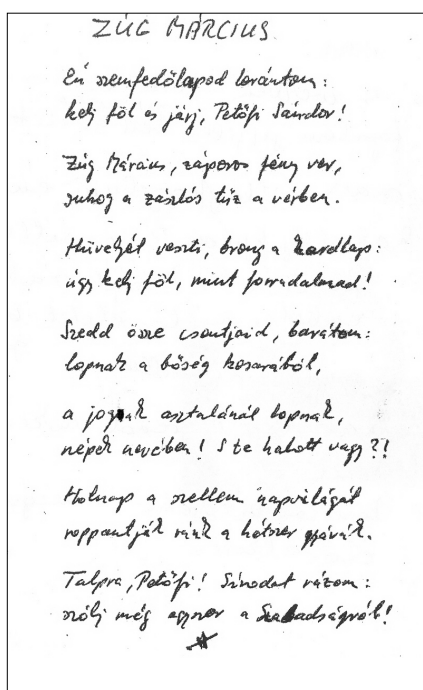 ZÚG MÁRCIUS
Én szemfedőlapod lerántom:
kelj föl és járj, Petőfi Sándor!
Zúg Március, záporos fény ver,
suhog a zászlós tűz a vérben.
Hüvelyét veszti, brong a kardlap:
úgy kelj föl, mint forradalmad!
Szedd össze csontjaid, barátom:
lopnak a bőség kosarából,
a jognak asztalánál lopnak,
népek nevében! S te halott vagy?!
Holnap a szellem napvilágát
roppantják ránk a hétszer gyávák.
Talpra, Petőfi! Sírodat rázom:
szólj még egyszer a Szabadságról!